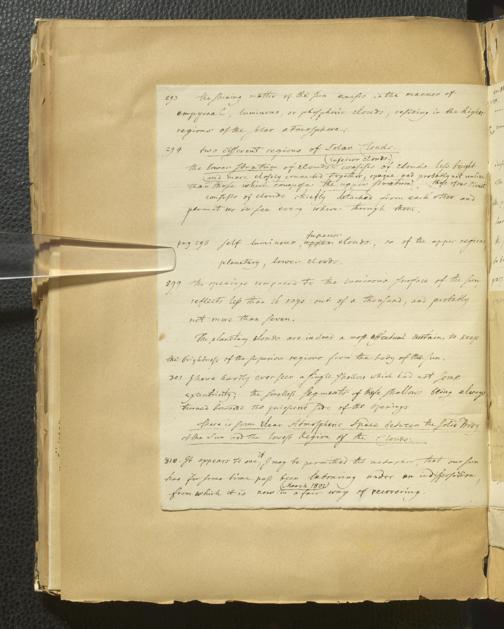 293 the shining matter of the sun exists in the manner of
empyreal, luminous, or phosphoric clouds, residing in the higher
regions of the solar atmosphere.
294 two different regions of Solar Clouds.
(inferior clouds)
the lower stratum of clouds consists of clouds less bright
and more closely connected together, opaque, and probably not unlike
than those which compose the upper stratum. these
consists of clouds chiefly detached from each other and
permit us to see every where through them.
superior
pag 295 self luminous, upper clouds, or of the upper regions
planetary, lower clouds.
299 the openings compared to the luminous surface of the sun
reflects less than 16 rays out of a thousand, and probably
not more than seven.
The planetary clouds are indeed a most effectual curtain, to keep
the brightness of the superior regions from the body of the sun.
301 I have hardly ever seen a single shallow which had not some
excentricity; the smallest segments of these shallows being always
turned towards the quiescent side of the openings
There is some clear Atmospheric Space between the Solid Body
of the Sun and the lowest Region of the Clouds.
310 It appears to me if I may be permitted the metaphor, that our sun
has for some time past been labouring under an indisposition,
(March 1801)
from which it is now in a fair way of recovering.